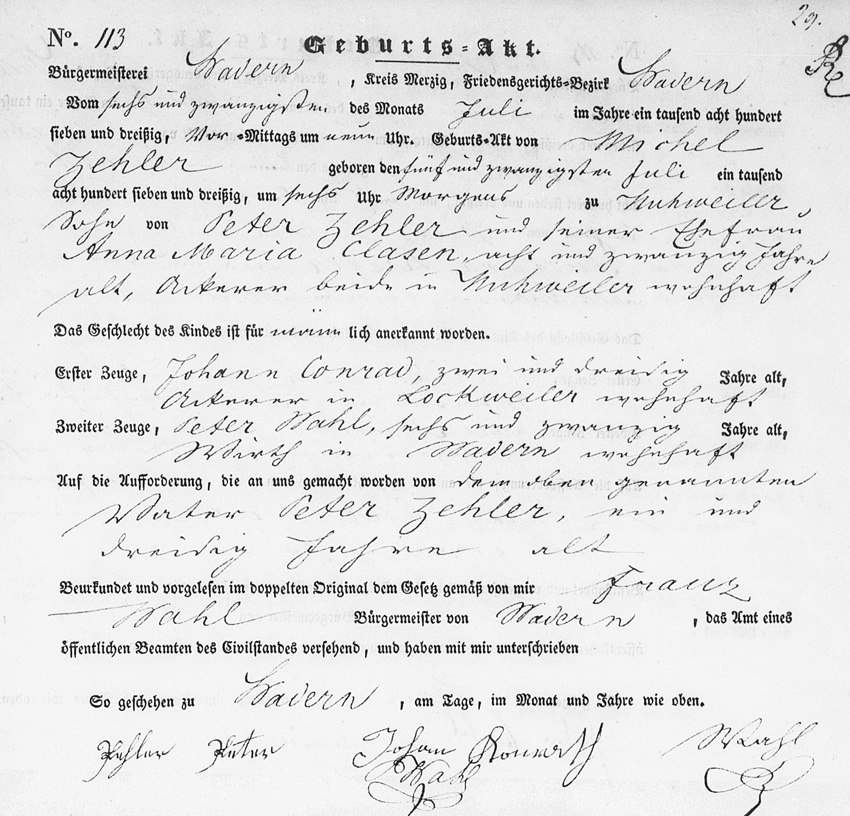 29.
No. 113 Geburts-Akt.
Bürgermeisterei Wadern, Kreis Merzig, Friedensgerichts-Bezirk Wadern
Vom sechs und zwanzigsten des Monats Juli im Jahre ein tausend acht hundert
sieben und dreißig, Vor-Mittags um neun Uhr. Geburts-Akt von Michel
Zehler geboren den fünf und zwanzigsten Juli ein tausend
acht hundert sieben und dreißig, um sechs Uhr Morgens zu Nuhweiler
Sohn von Peter Zehler und seiner Ehefrau
Anna Maria Clasen, acht und zwanzig Jahre
alt, Ackerer beide in Nuhweiler wohnhaft
Das Geschlecht des Kindes ist für männlich anerkannt worden.
Erster Zeuge, Johann Conrad, zwei und dreisig Jahre alt,
Ackerer in Lockweiler wohnhaft
Zweiter Zeuge, Peter Wahl, sechs und zwanzig Jahre alt,
Wirth in Wadern wohnhaft
Auf die Aufforderung, die an uns gemacht worden von dem oben genannten
Vater Peter Zehler, ein und
dreisig Jahre alt
Beurkundet und vorgelesen im doppelten Original dem Gesetz gemäß von mir Franz
Wahl Bürgermeister von Wadern, das Amt eines
öffentlichen Beamten des Civilstandes versehend, und haben mit mir unterschrieben
So geschehen zu Wadern, am Tage, im Monat und Jahre wie oben.
Zehler Peter Johan Konrath Wahl
PWahl